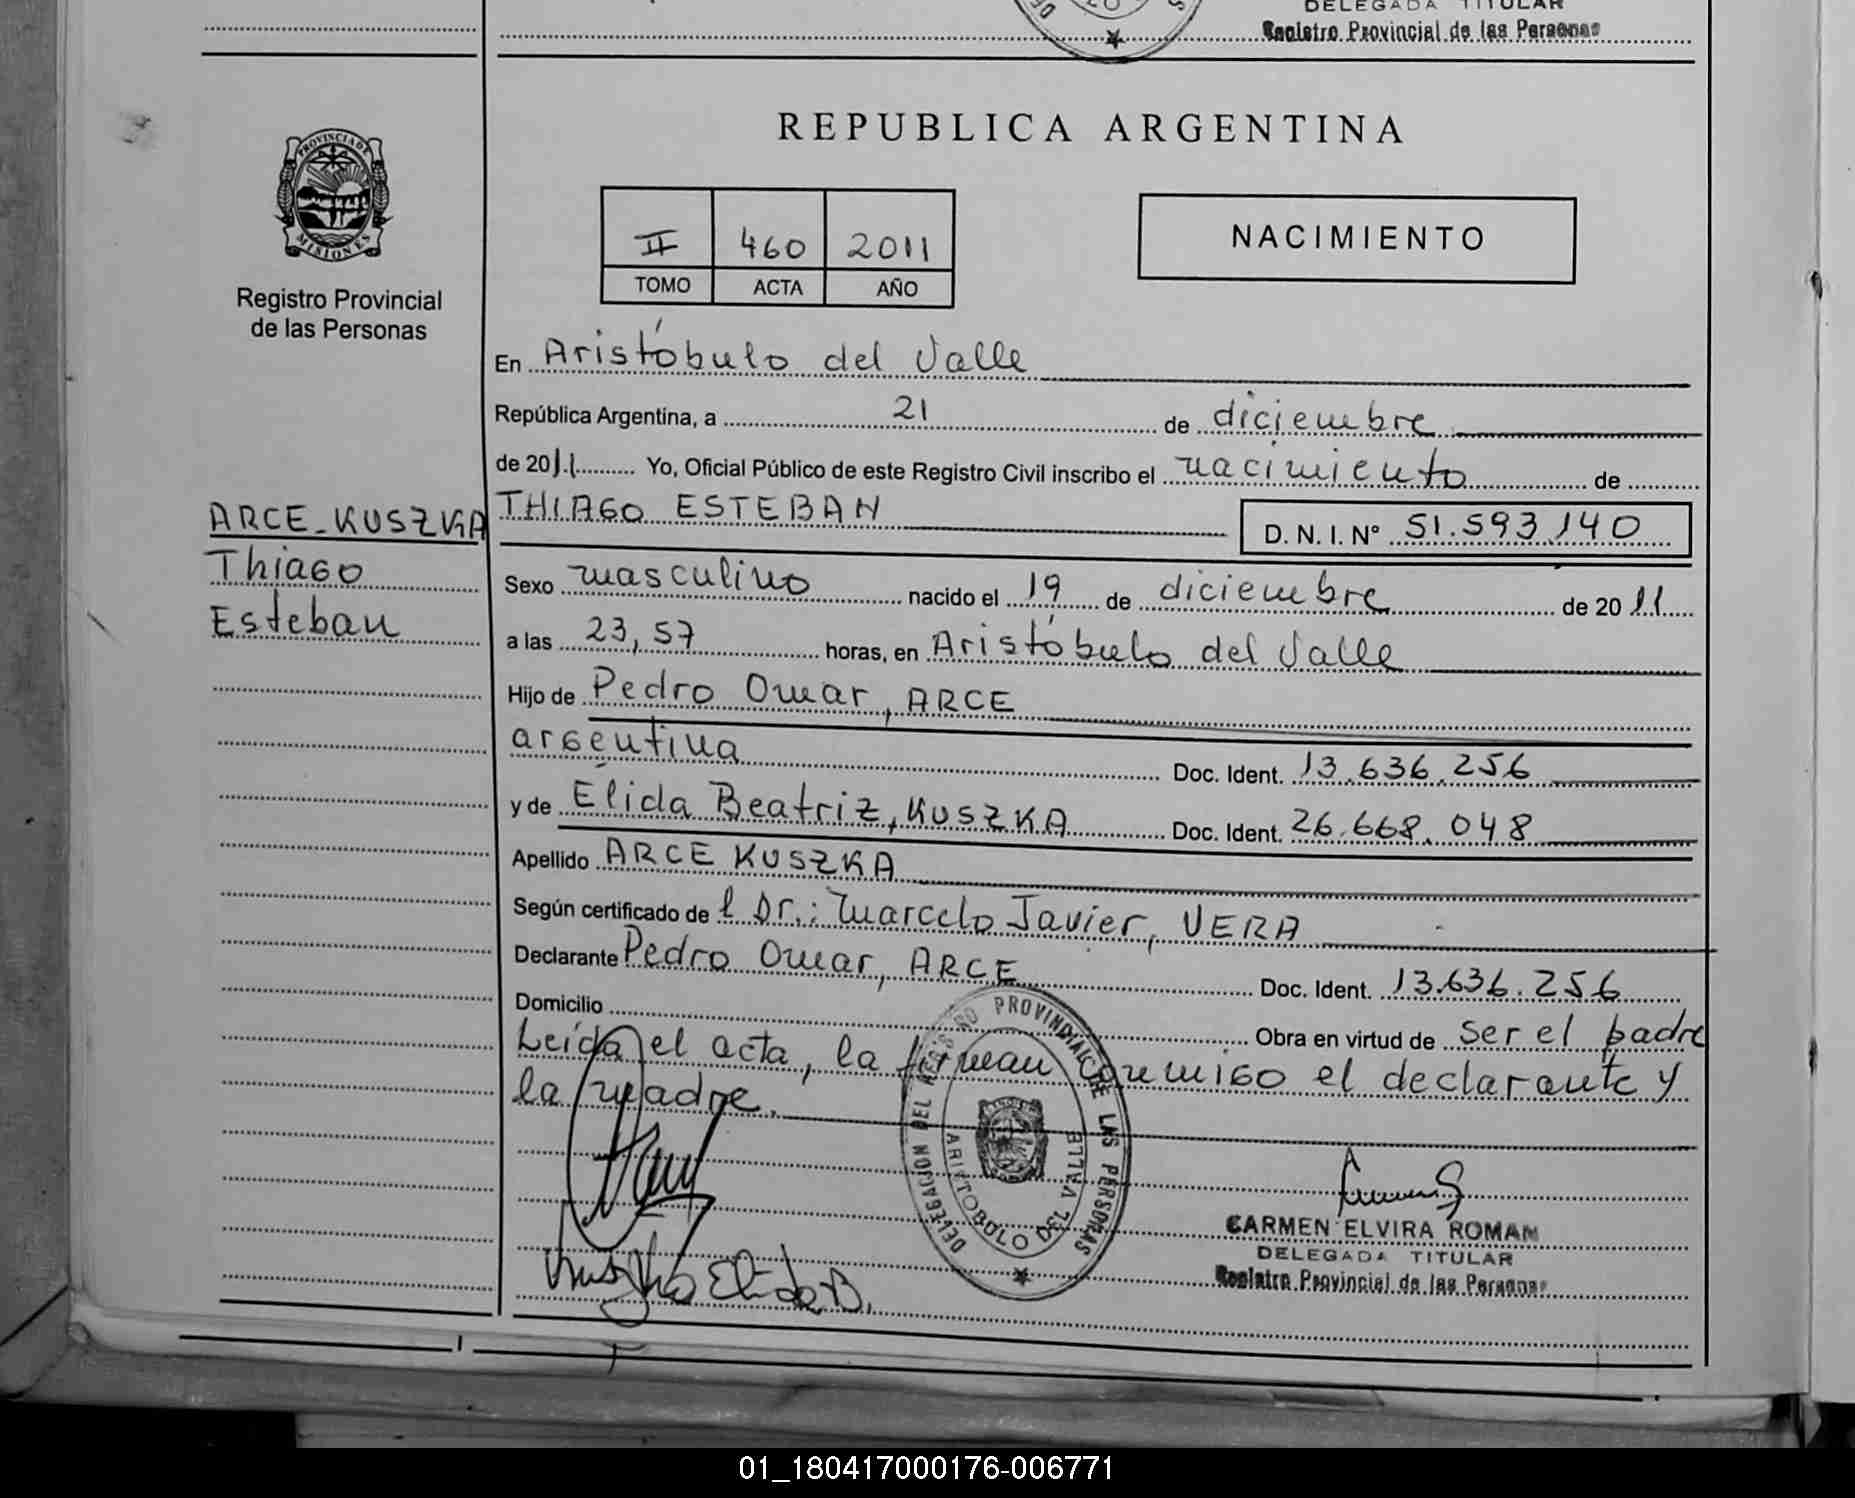 DELEGADA TITULAR
Registro Provincial de las Personas
PROVINCIA DE MISIONES
Registro Provincial
de las Personas
REPUBLICA ARGENTINA
II 460 2011
TOMO ACTA AÑO
NACIMIENTO
En Aristóbulo del Valle
República Argentina, a 21 de diciembre
de 2011 Yo, Oficial Público de este Registro Civil inscribo el nacimiento de
ARCE-KUSZKA
Thiago
Esteban
THIAGO ESTEBAN D. N. I. N° 51.593.140
Sexo masculino nacido el 19 de diciembre de 2011
a las 23,57 horas, en Aristóbulo del Valle
Hijo de Pedro Omar, ARCE
argentina Doc. Ident. 13.636.256
y de Élida Beatriz, KUSZKA Doc. Ident. 26.668.048
Apellido ARCE KUSZKA
Según certificado de l Dr.: Marcelo Javier, VERA
Declarante Pedro Omar, ARCE Doc. Ident. 13.636.256
Domicilio Obra en virtud de ser el padre
Leída el acta, la firman conmigo el declarante y
la madre.
DELEGACION DEL REGISTRO PROVINCIAL DE LAS PERSONAS
ARISTOBULO DEL VALLE
Kuszka Elida B.
CARMEN ELVIRA ROMAN
DELEGADA TITULAR
Registro Provincial de las Personas
01_180417000176-006771